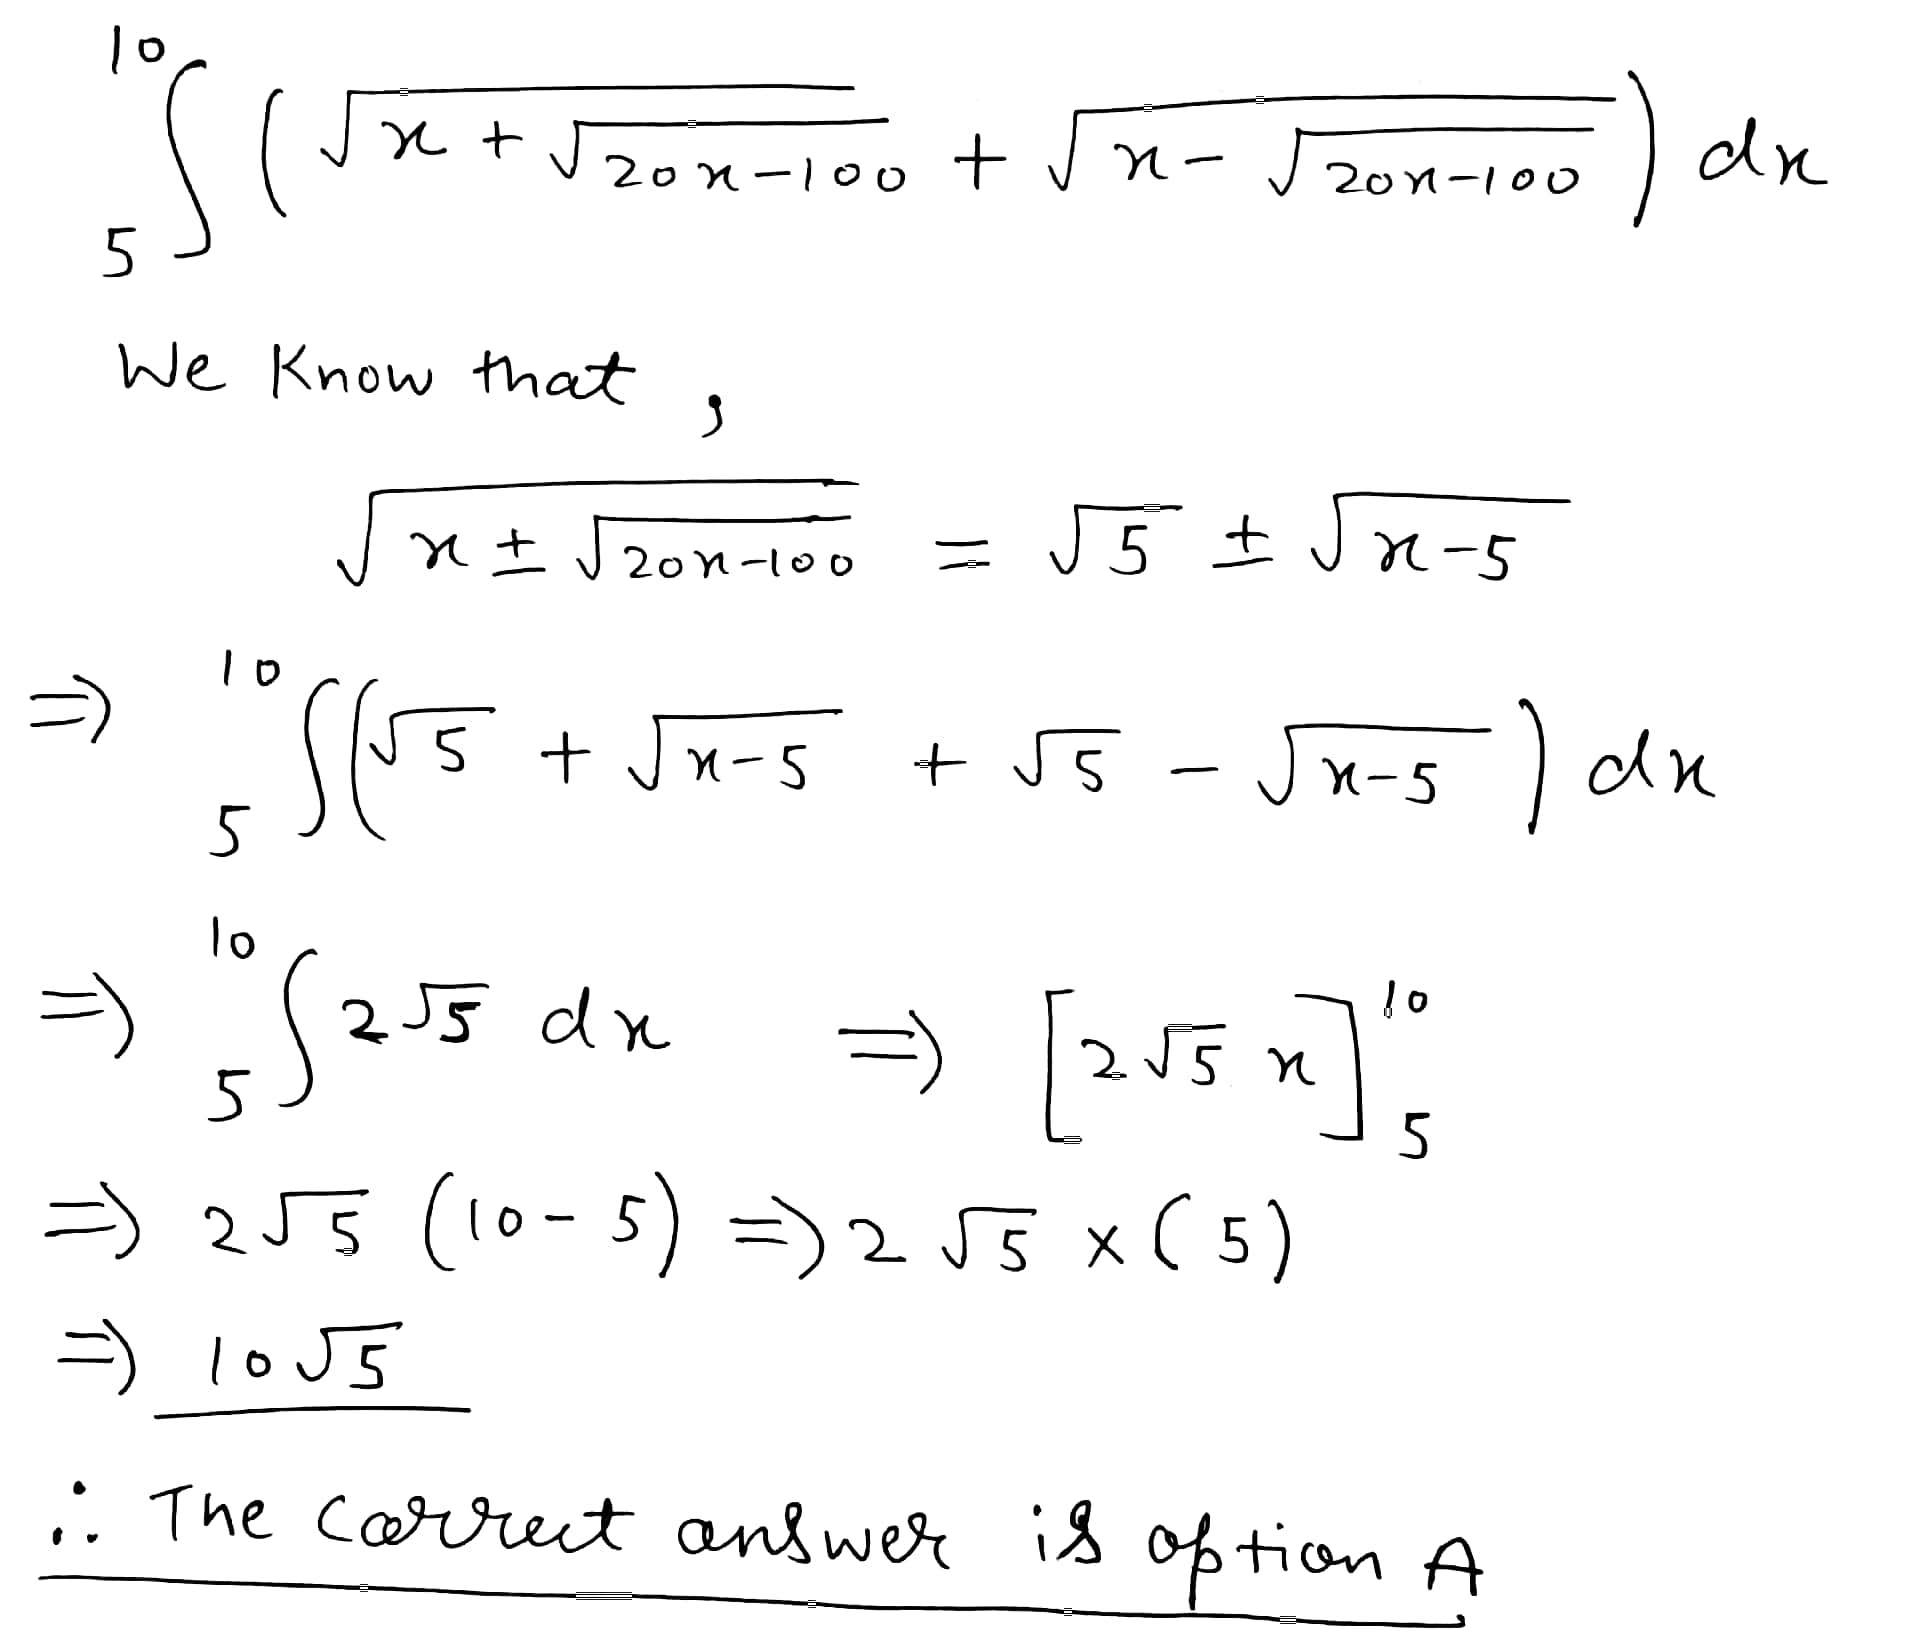 ₅∫¹⁰ (√(x + √(20x-100)) + √(x - √(20x-100))) dx
We Know that,
√(x ± √(20x-100)) = √5 ± √(x-5)
⇒ ₅∫¹⁰ (√5 + √(x-5) + √5 - √(x-5)) dx
⇒ ₅∫¹⁰ 2√5 dx ⇒ [2√5 x]₅¹⁰
⇒ 2√5 (10-5) ⇒ 2√5 × (5)
⇒ 10√5
∴ The Correct answer is option A